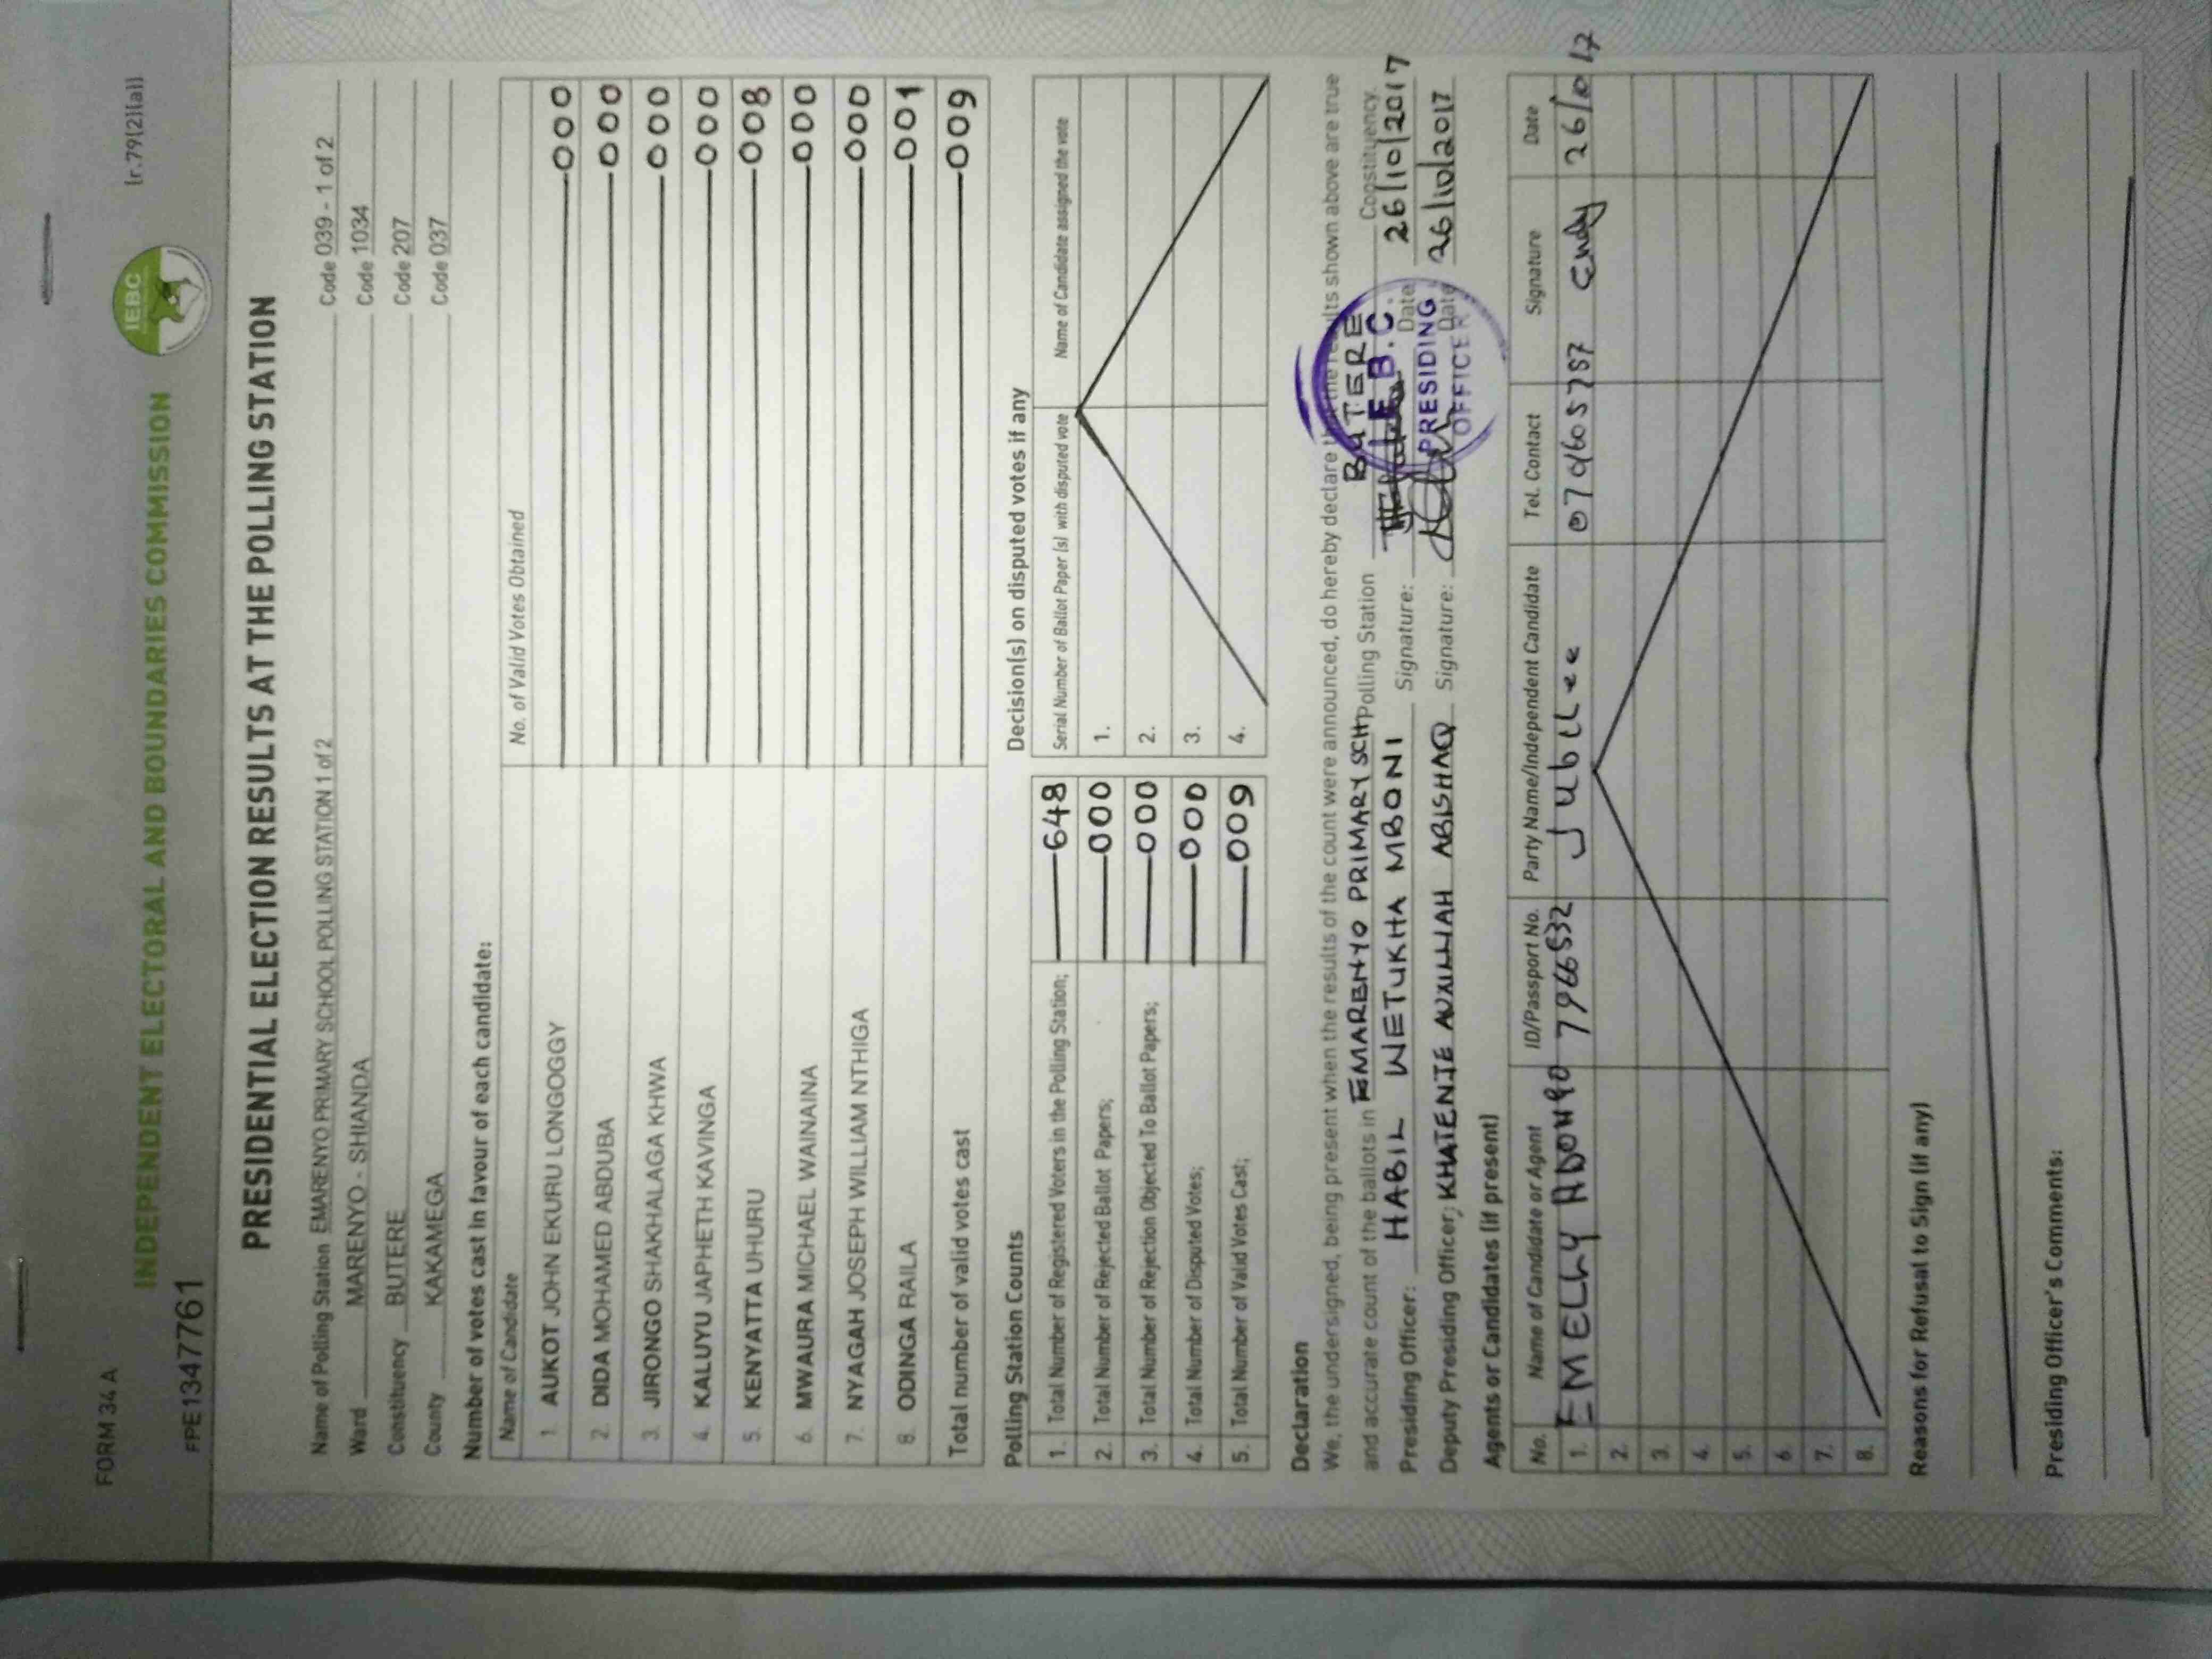 FORM 34 A
(r.79(2)(a))
INDEPENDENT ELECTORAL AND BOUNDARIES COMMISSION
IEBC
FPE1347761
PRESIDENTIAL ELECTION RESULTS AT THE POLLING STATION
Name of Polling Station EMARENYO PRIMARY SCHOOL POLLING STATION 1 of 2 Code 039 - 1 of 2
Ward MARENYO - SHIANDA Code 1034
Constituency BUTERE Code 207
County KAKAMEGA Code 037
Number of votes cast in favour of each candidate:
Name of Candidate No. of Valid Votes Obtained
1. AUKOT JOHN EKURU LONGOGGY 000
2. DIDA MOHAMED ABDUBA 000
3. JIRONGO SHAKHALAGA KHWA 000
4. KALUYU JAPHETH KAVINGA 000
5. KENYATTA UHURU 008
6. MWAURA MICHAEL WAINAINA 000
7. NYAGAH JOSEPH WILLIAM NTHIGA 000
8. ODINGA RAILA 001
Total number of valid votes cast 009
Polling Station Counts
1. Total Number of Registered Voters in the Polling Station; 648
2. Total Number of Rejected Ballot Papers; 000
3. Total Number of Rejection Objected To Ballot Papers; 000
4. Total Number of Disputed Votes; 000
5. Total Number of Valid Votes Cast; 009
Decision(s) on disputed votes if any
Serial Number of Ballot Paper (s) with disputed vote Name of Candidate assigned the vote
1.
2.
3.
4.
Declaration
We, the undersigned, being present when the results of the count were announced, do hereby declare that the results shown above are true
and accurate count of the ballots in EMARENYO PRIMARY SCH Polling Station BUTERE Constituency.
Presiding Officer: HABIL WETUKHA MBONI Signature: Date 26/10/2017
Deputy Presiding Officer; KHATENJE AUXILIAH ABISHAQ Signature: Date 26/10/2017
I.E.B.C.
PRESIDING
OFFICER
Agents or Candidates (if present)
No. Name of Candidate or Agent ID/Passport No. Party Name/Independent Candidate Tel. Contact Signature Date
1. EMELLY 7966532 Jubilee
2.
3.
4.
5.
6.
7.
8.
Reasons for Refusal to Sign (if any)
Presiding Officer's Comments: